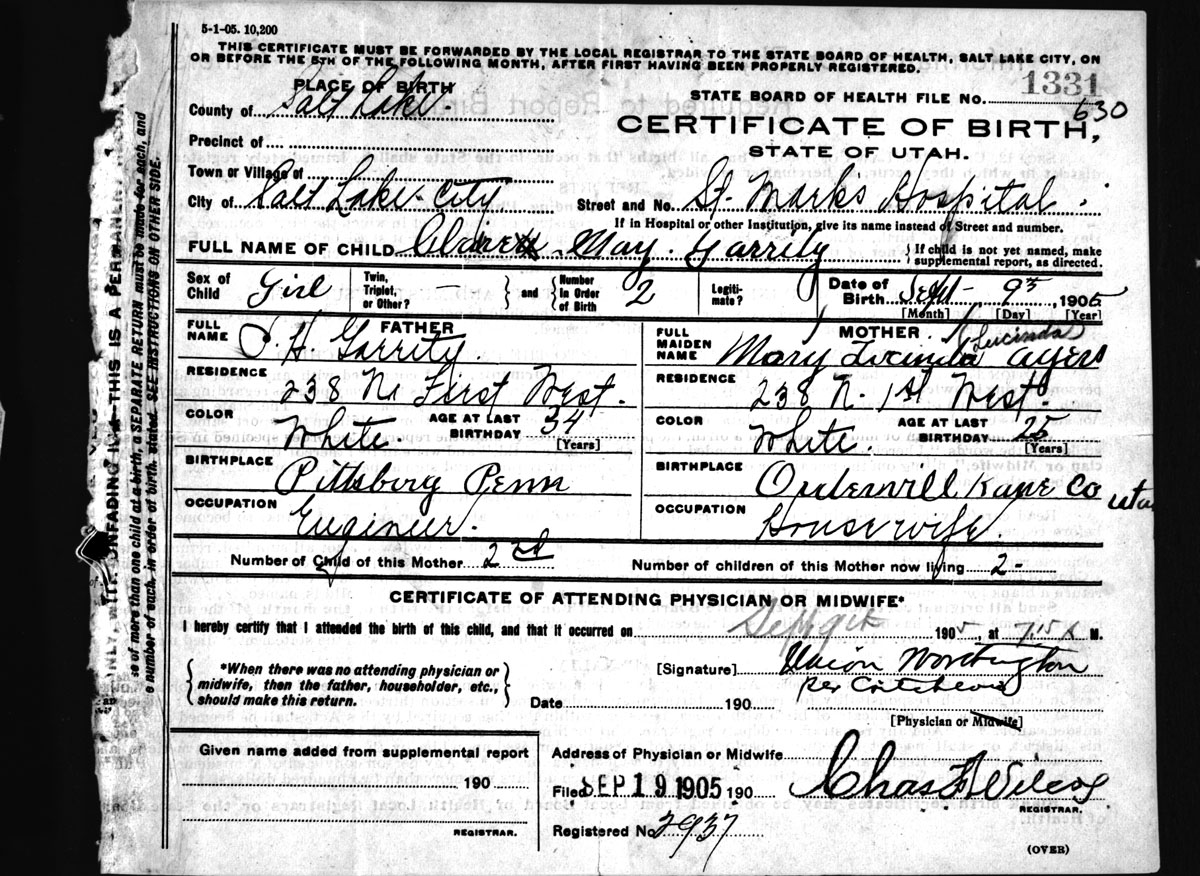 5-1-05. 10,200
THIS CERTIFICATE MUST BE FORWARDED BY THE LOCAL REGISTRAR TO THE STATE BOARD OF HEALTH, SALT LAKE CITY, ON
OR BEFORE THE 5TH OF THE FOLLOWING MONTH, AFTER FIRST HAVING BEEN PROPERLY REGISTERED.
PLACE OF BIRTH
County of Salt Lake.
Precinct of
Town or Village of
City of Salt Lake City
STATE BOARD OF HEALTH FILE NO. 1331
630
CERTIFICATE OF BIRTH,
STATE OF UTAH.
Street and No. St. Marks Hospital.
If in Hospital or other Institution, give its name instead of Street and number.
FULL NAME OF CHILD May. Garrity
{ If child is not yet named, make
supplemental report, as directed.
Sex of Child Girl
Twin, Triplet, or Other? —
and
Number in Order of Birth 2
Legitimate?
Date of Birth Sept 9th, 1905
[Month] [Day] [Year]
FATHER
FULL NAME H. Garrity
RESIDENCE
238 N. First West.
COLOR White
AGE AT LAST BIRTHDAY 34
[Years]
BIRTHPLACE
Pittsburg Penn
OCCUPATION
Engineer.
MOTHER
FULL MAIDEN NAME Mary Lucinda (Lucinda) Ayers
RESIDENCE
238 N. 1st West.
COLOR White.
AGE AT LAST BIRTHDAY 25
[Years]
BIRTHPLACE
Orderville Kane Co Utah
OCCUPATION
Housewife.
Number of Child of this Mother 2nd
Number of children of this Mother now living 2-
CERTIFICATE OF ATTENDING PHYSICIAN OR MIDWIFE*
I hereby certify that I attended the birth of this child, and that it occurred on Sept 9th 1905, at 7.15 A M.
{ *When there was no attending physician or
midwife, then the father, householder, etc.,
should make this return. }
[Signature] Union Worthington
per
Date 190
[Physician or Midwife]
Given name added from supplemental report
190
REGISTRAR.
Address of Physician or Midwife
Filed SEP 19 1905 190
Chas F Wilcox
REGISTRAR.
Registered No. 2937
(OVER)
UNFADING INK—THIS IS A PERMANENT RECORD
In case of more than one child at a birth, a SEPARATE RETURN must be made for each, and
the number of each, in order of birth, stated. SEE INSTRUCTIONS ON OTHER SIDE.